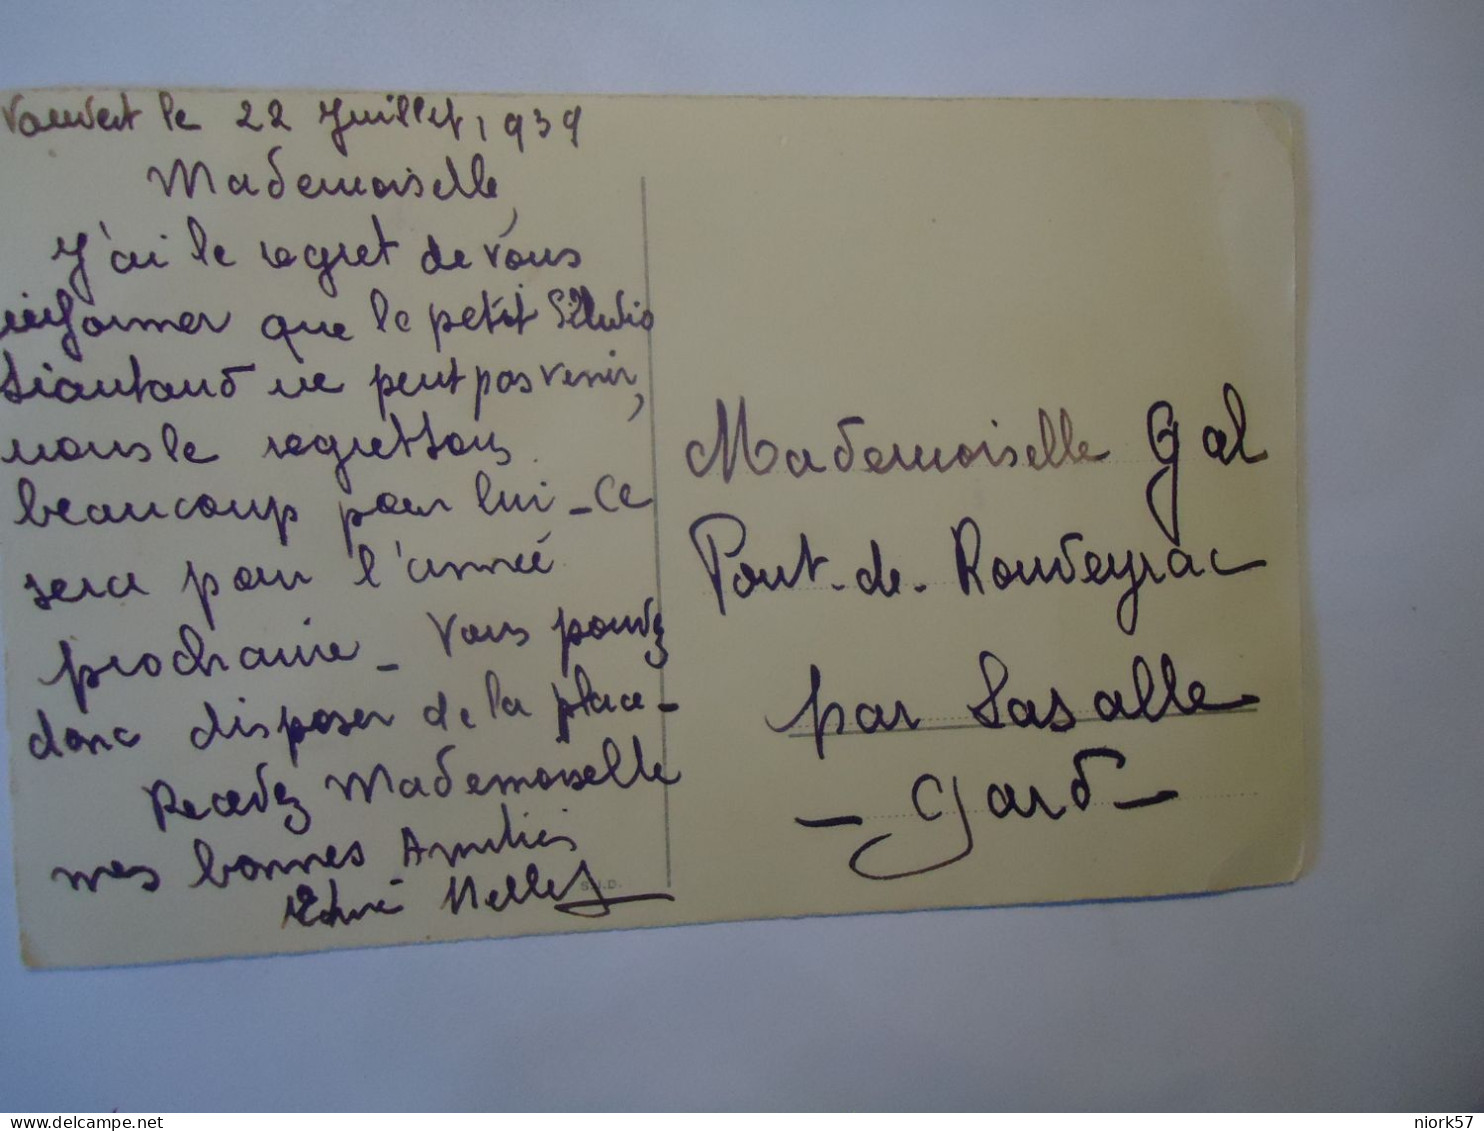 Vauvert le 22 Juillet 1939
Mademoiselle,
J'ai le regret de vous
informer que le petit
ne peut pas venir,
nous le regrettons
beaucoup pour lui - Ce
sera pour l'année
prochaine - Vous pouvez
donc disposer de la place -
Recevez Mademoiselle
mes bonnes Amitiés
S.J.D.
Mademoiselle Gal
Pont-de-Rouveyrac
par Lasalle
- Gard -
niork57